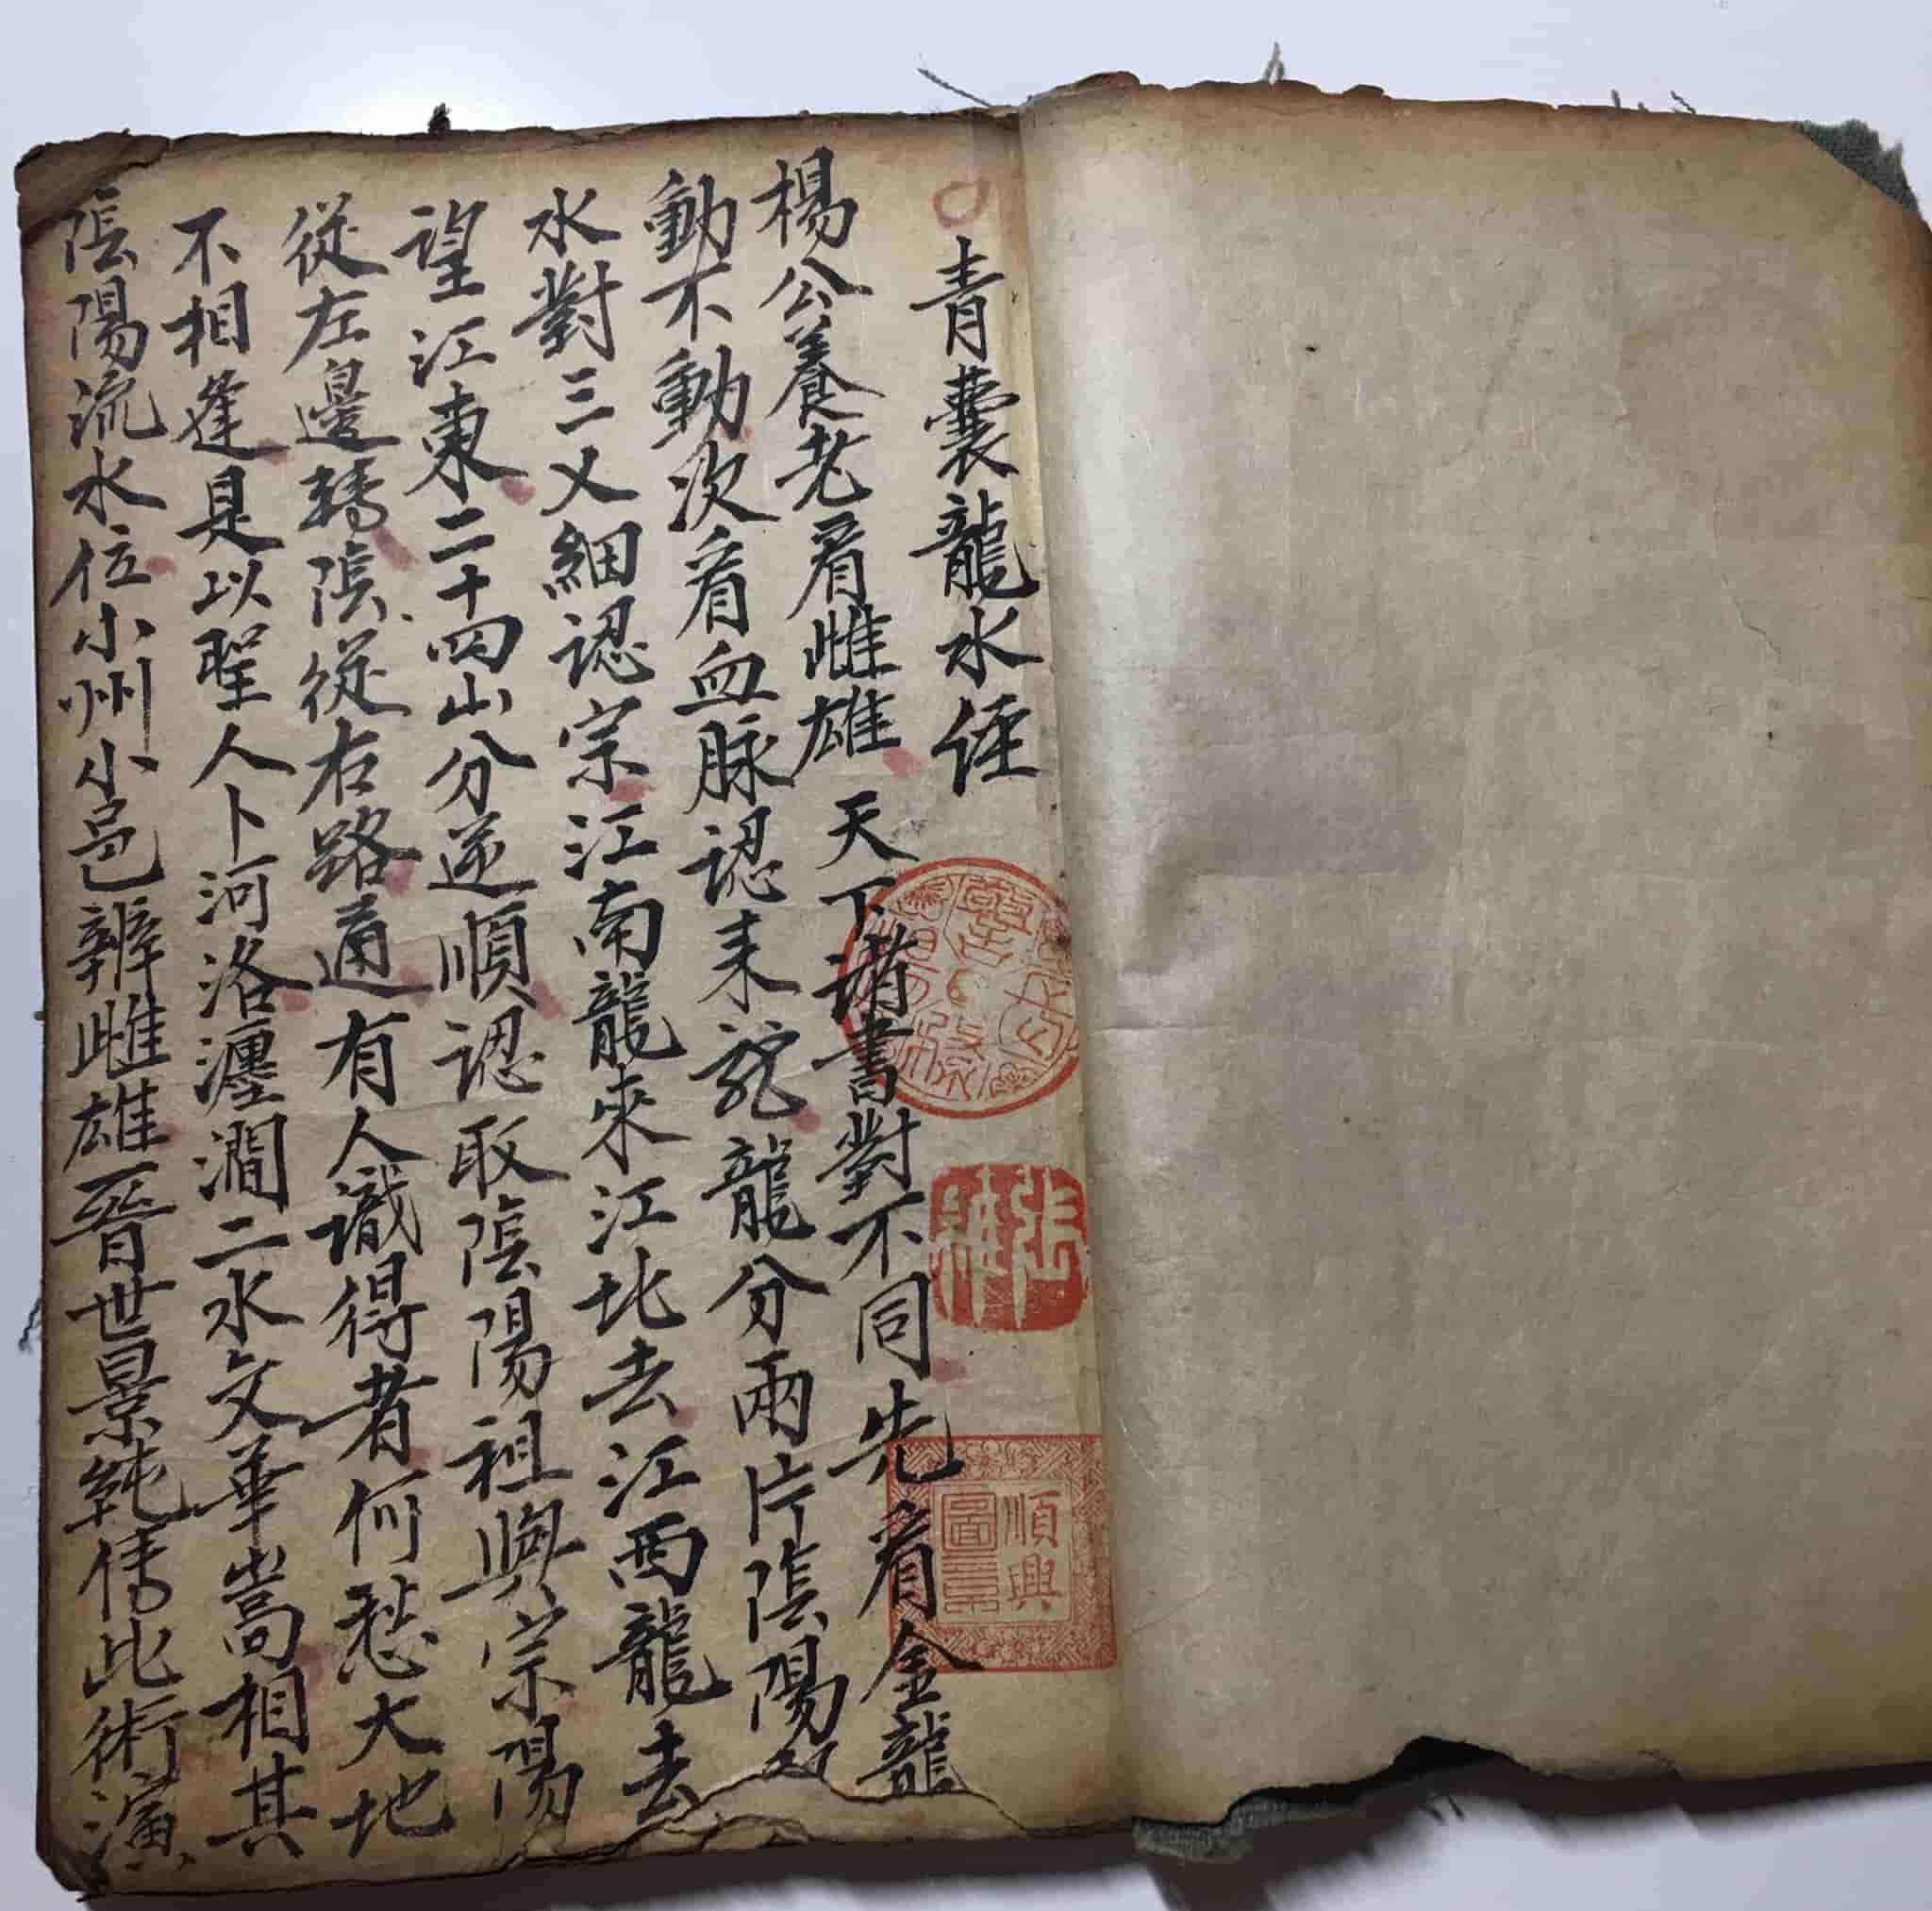 青囊龍水経
楊公養老看雌雄天下諸書對不同先看金龍
動不動次看血脉認来龍龍分兩片陰陽取
水對三叉細認宗江南龍來江北去江西龍去
望江東二十四山分逆順認取陰陽祖與宗陽
從左邊轉陰從右路通有人識得者何愁大地
不相逢是以聖人卜河洛瀍澗二水交華嵩相其
陰陽流水位小州小邑辨雌雄晉世景純傳此術演
張
順興
圖章